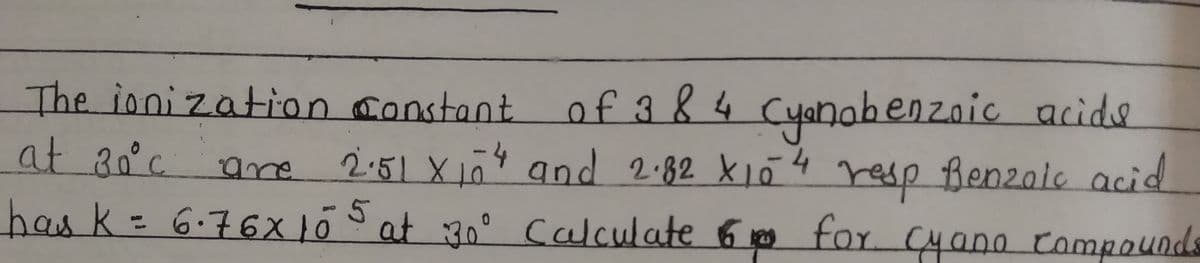 The ionization constant of 3 & 4 Cyanobenzoic acids
at 30°c are 2.51 X 10⁻⁴ and 2.82 X 10⁻⁴ resp Benzoic acid
has k = 6.76 x 10⁻⁵ at 30° Calculate for cyano compounds